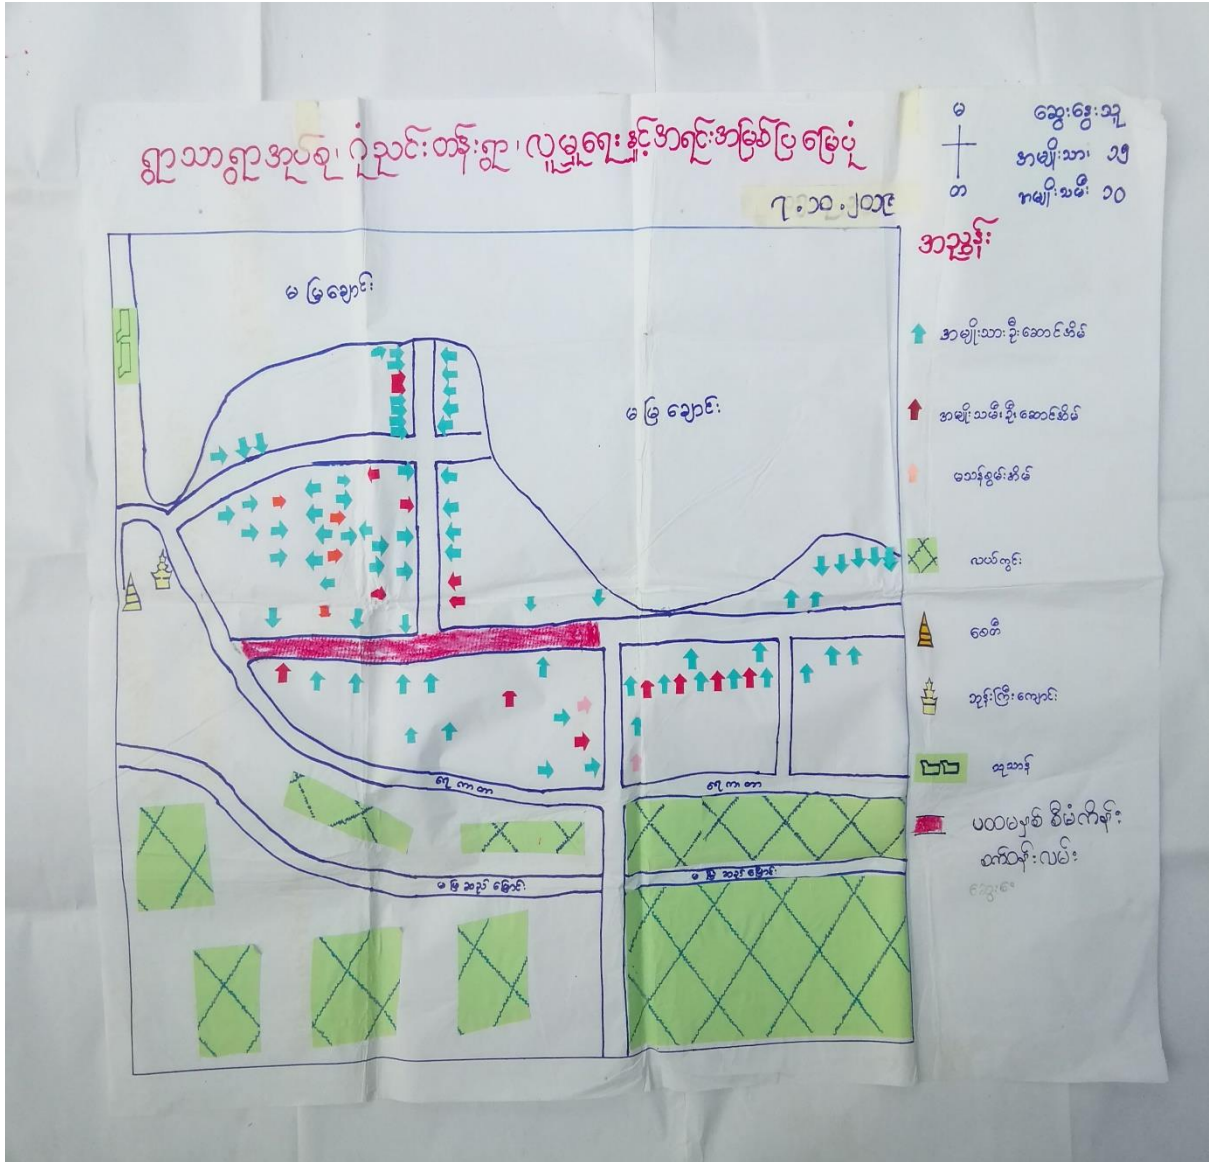 ရွာသာရွာအုပ်စု၊ ဂုံညင်းတန်းရွာ၊ လူမှုရေးနှင့်အရင်းအမြစ်ပြမြေပုံ
၇.၁၀.၂၀၁၉
မ
တ
ဆွေးနွေးသူ
အမျိုးသား ၁၅
အမျိုးသမီး ၁၀
အညွှန်း
အမျိုးသားဦးဆောင်အိမ်
အမျိုးသမီးဦးဆောင်အိမ်
မသန်စွမ်းအိမ်
လယ်ကွင်း
စေတီ
ဘုန်းကြီးကျောင်း
သုသာန်
ပထမနှစ် စီမံကိန်း
လမ်း
မမြချောင်း
မမြချောင်း
ရေကာတာ
ရေကာတာ
မမြဆည်မြောင်း
မမြဆည်မြောင်း